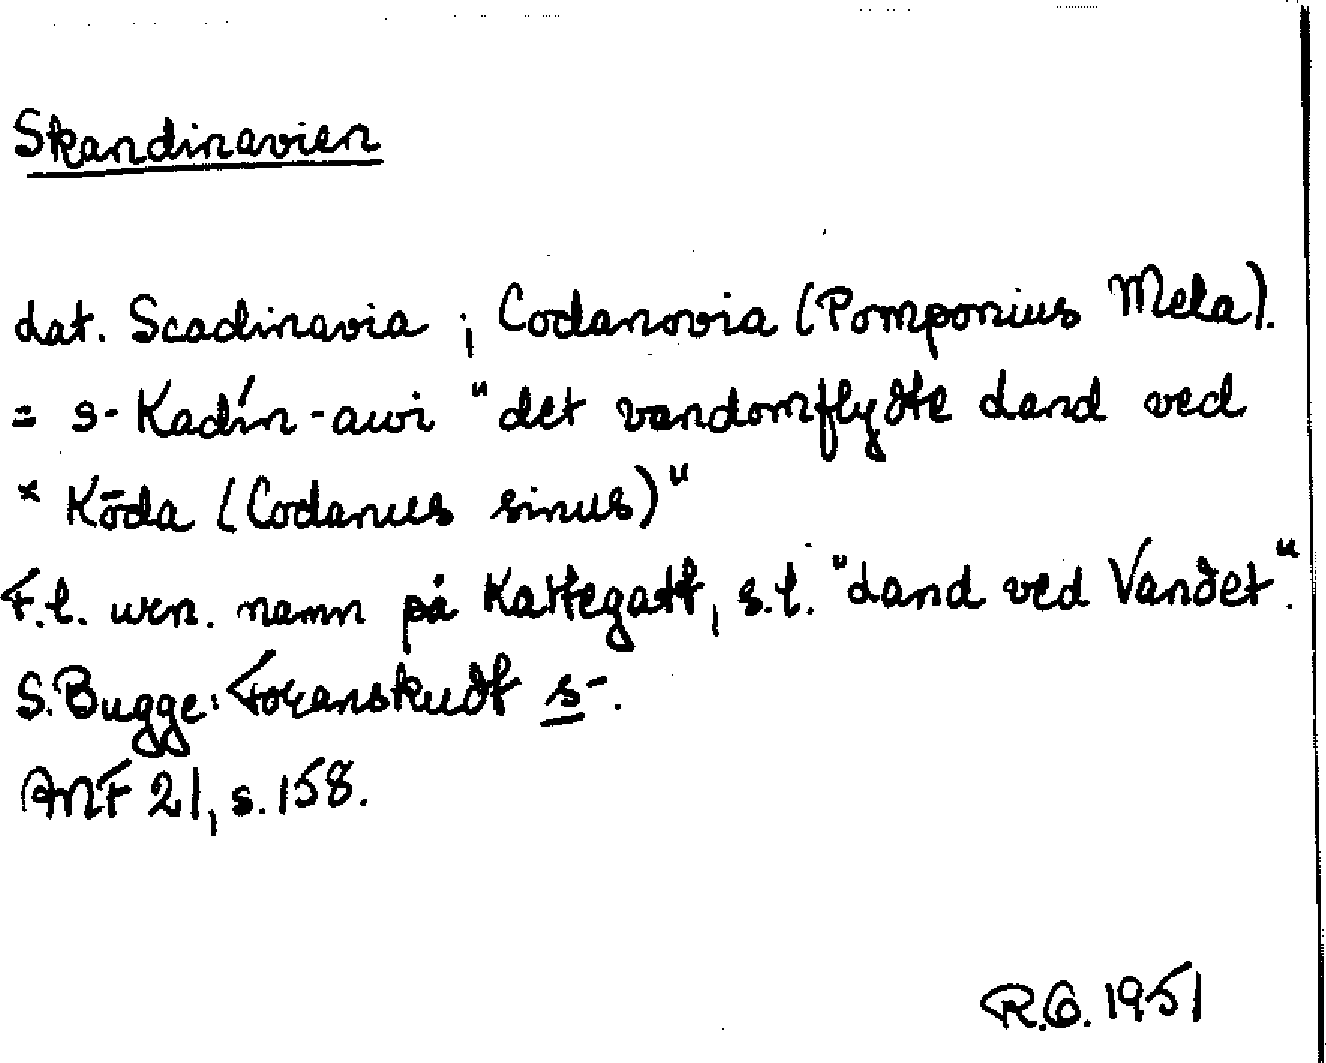 Skandinavien
Lat. Scadinavia ; Codanovia (Pomponius Mela).
= s-Kadín-awi "det vandomflydte Land ved
* Kōda (Codanus sinus)"
F.l. urn. namn på Kattegatt, s.l. "Land ved Vandet".
S. Bugge: Foranskudt s-.
ANF 21, s. 158.
R.G. 1951